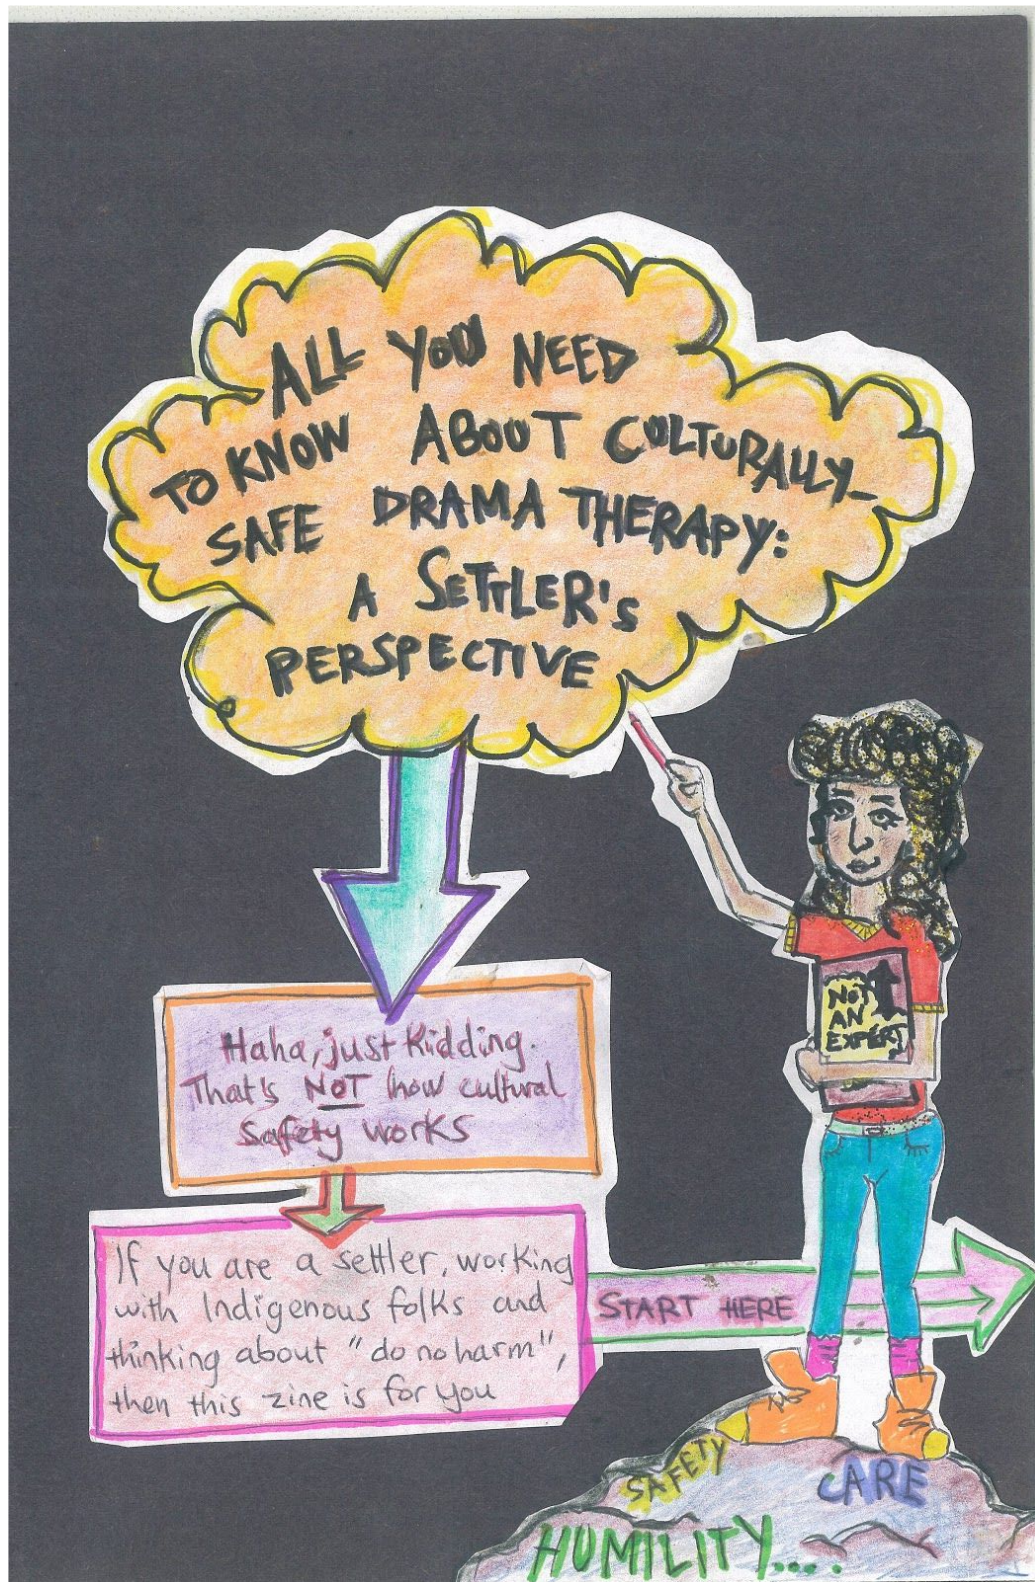 ALL YOU NEED
TO KNOW ABOUT CULTURALLY-
SAFE DRAMA THERAPY:
A SETTLER'S
PERSPECTIVE
Haha, just kidding.
That's NOT how cultural
safety works
NOT
AN
EXPERT
If you are a settler, working
with Indigenous folks and
thinking about "do no harm",
then this zine is for you
START HERE
SAFETY
CARE
HUMILITY....